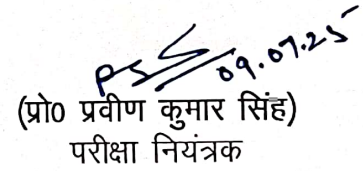 09.07.25
(प्रो0 प्रवीण कुमार सिंह)
परीक्षा नियंत्रक